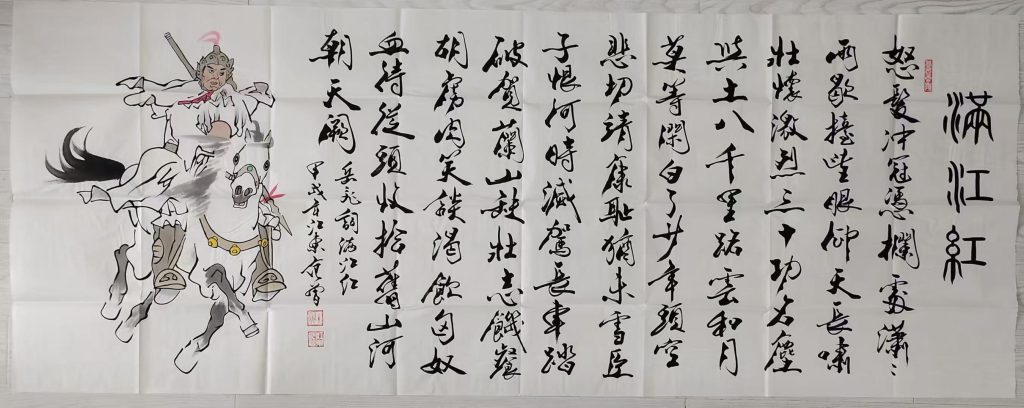 滿江紅
怒髮冲冠憑欄處瀟〻
雨歇擡望眼仰天長嘯
壯懷激烈三十功名塵
與土八千里路雲和月
莫等閑白了少年頭空
悲切靖康恥猶未雪臣
子恨何時滅駕長車踏
破賀蘭山缺壯志饑餐
胡虜肉笑談渴飲匈奴
血待從頭收拾舊山河
朝天闕
岳飛詞滿江紅
甲戌年江東范曾